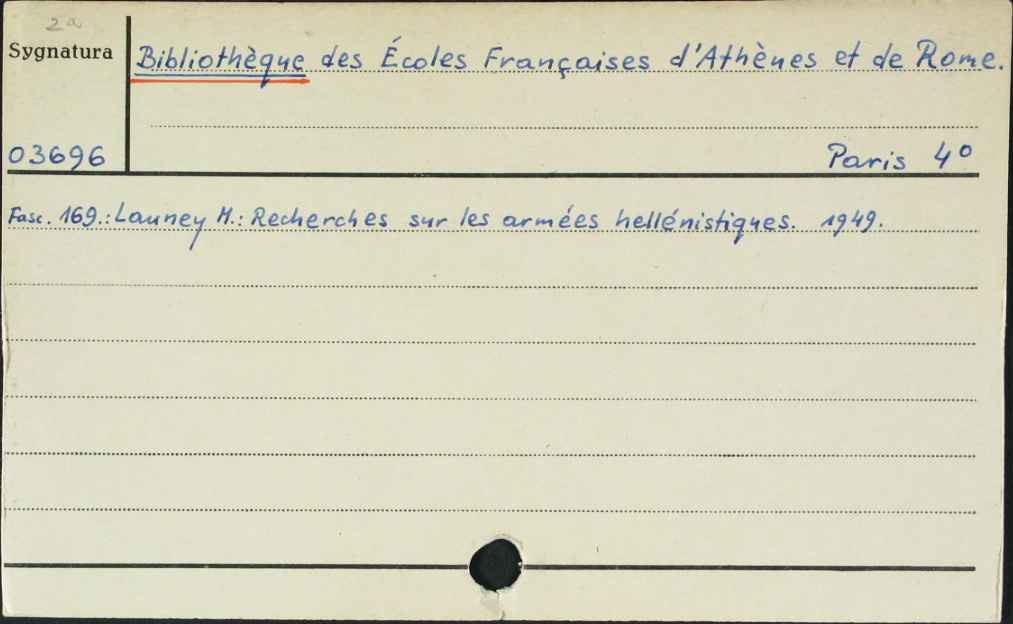 2a
Sygnatura
Bibliothèque des Écoles Françaises d'Athènes et de Rome.
03696
Paris 4°
Fasc. 169.: Launey M.: Recherches sur les armées hellénistiques. 1949.